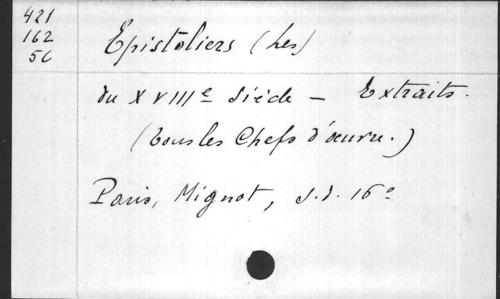 421
162
56
Epistoliers (Les)
du XVIIIe Siècle — Extraits.
(Tous les Chefs d'œuvre.)
Paris, Mignot, s.d. 16°